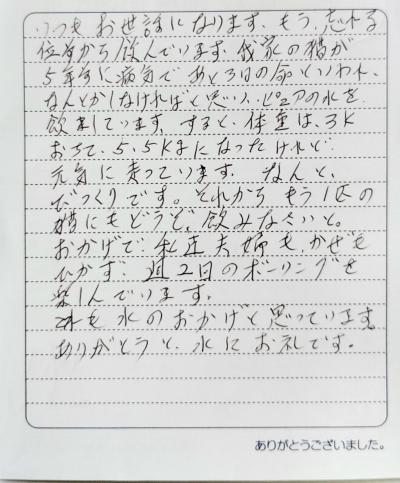 いつもお世話になります。もう、忘れる
位前から飲んでいます。我家の猫が
5年前に病気であと3日の命といわれ、
なんとかしなければと思い、ピュアの水を
飲ましています。すると、体重は、3K
おちて、5.5Kgになったけれど
元気に走っています。なんと、
びっくりです。それから もう1匹の
猫にもどうぞ、飲みなさいと。
おかげで 私達夫婦も、かぜも
ひかず、週2日のボーリングを
楽しんでいます。
これも 水のおかげと思っています。
ありがとうと、水にお礼です。
ありがとうございました。